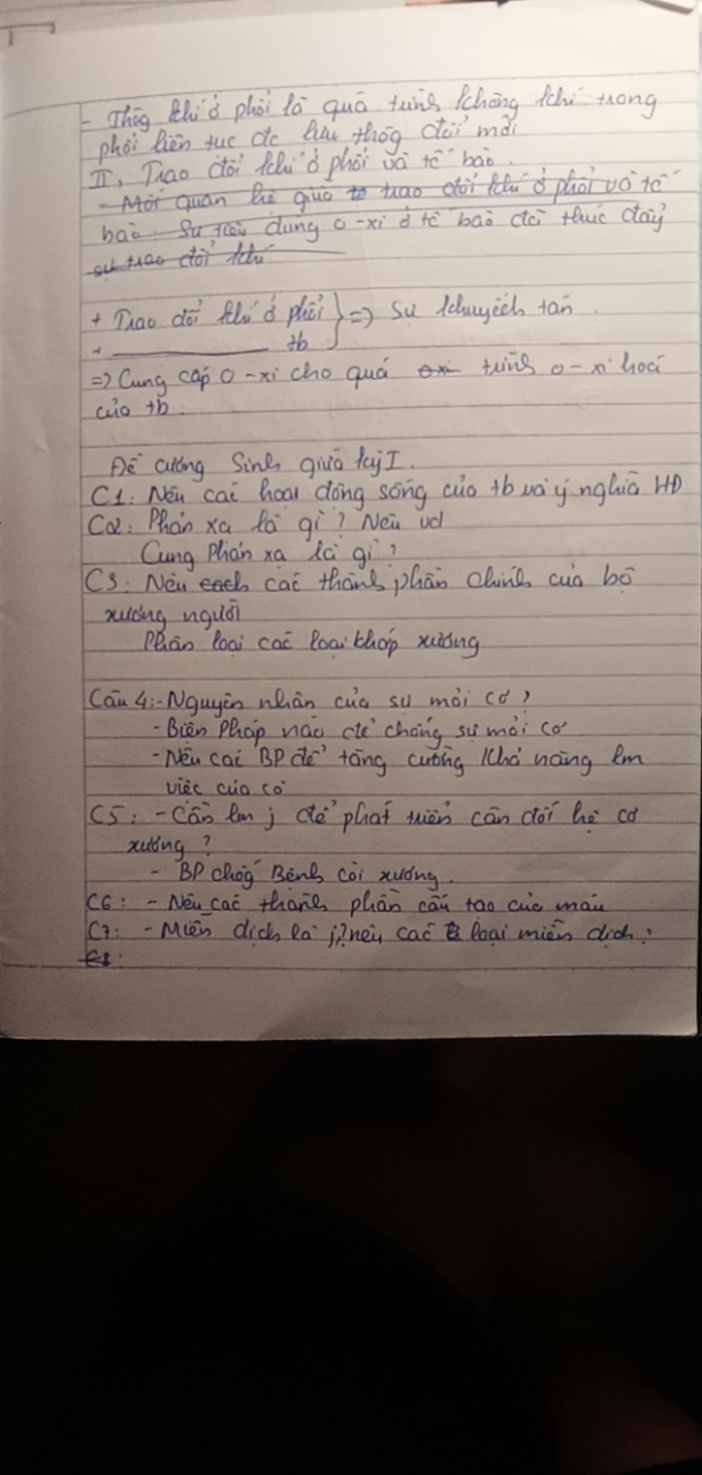 - Thôg khí ở phổi là quá trình không khí trong
phổi liên tục đc lưu thôg đổi mới
II, Trao đổi khí ở phổi và tế bào.
- Mối quan hệ giữa tr trao đổi khí ở phổi và tế
bào. Sự tiêu dùng o-xi ở tế bào đã thúc đẩy
sự trao đổi khí
+ Trao đổi khí ở phổi } => Sự khuyếch tán.
+ __________ tb
=> Cung cấp O-xi cho quá oxi trình o-xi hoá
của tb.
Đề cương Sinh giữa kỳ I.
C1: Nêu các hoạt động sống của tb và ý nghĩa HĐ
C2: Phản xạ là gì? Nêu vd
Cung phản xạ là gì?
C3: Nêu cách các thành phần chính của bộ
xương người
Phân loại các loại khớp xương
Câu 4: - Nguyên nhân của sự mỏi cơ?
- Biện Pháp nào để chống sự mỏi cơ
- Nêu các BP để tăng cường khả năng lm
việc của cơ
C5: - Cần lm j để phát triển cân đối hệ cơ
xương?
- BP chốg Bệnh còi xương.
C6: - Nêu các thành phần cấu tạo của máu
C7: - Miễn dịch là j? nêu các loại miễn dịch?
C8: